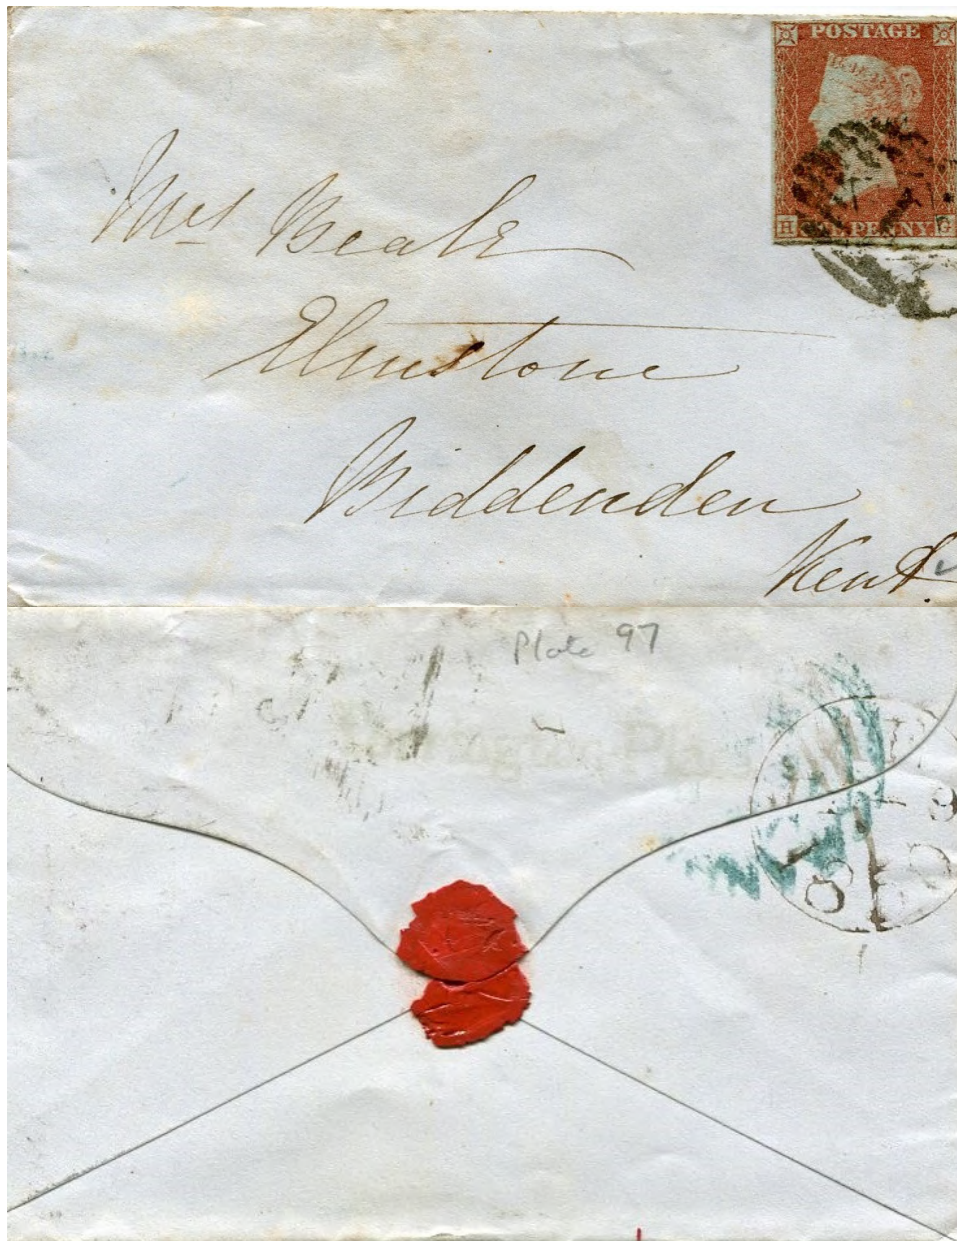 POSTAGE
H ONE PENNY G
Mrs Beale
Elmstone
Biddenden
Kent.
Plate 97